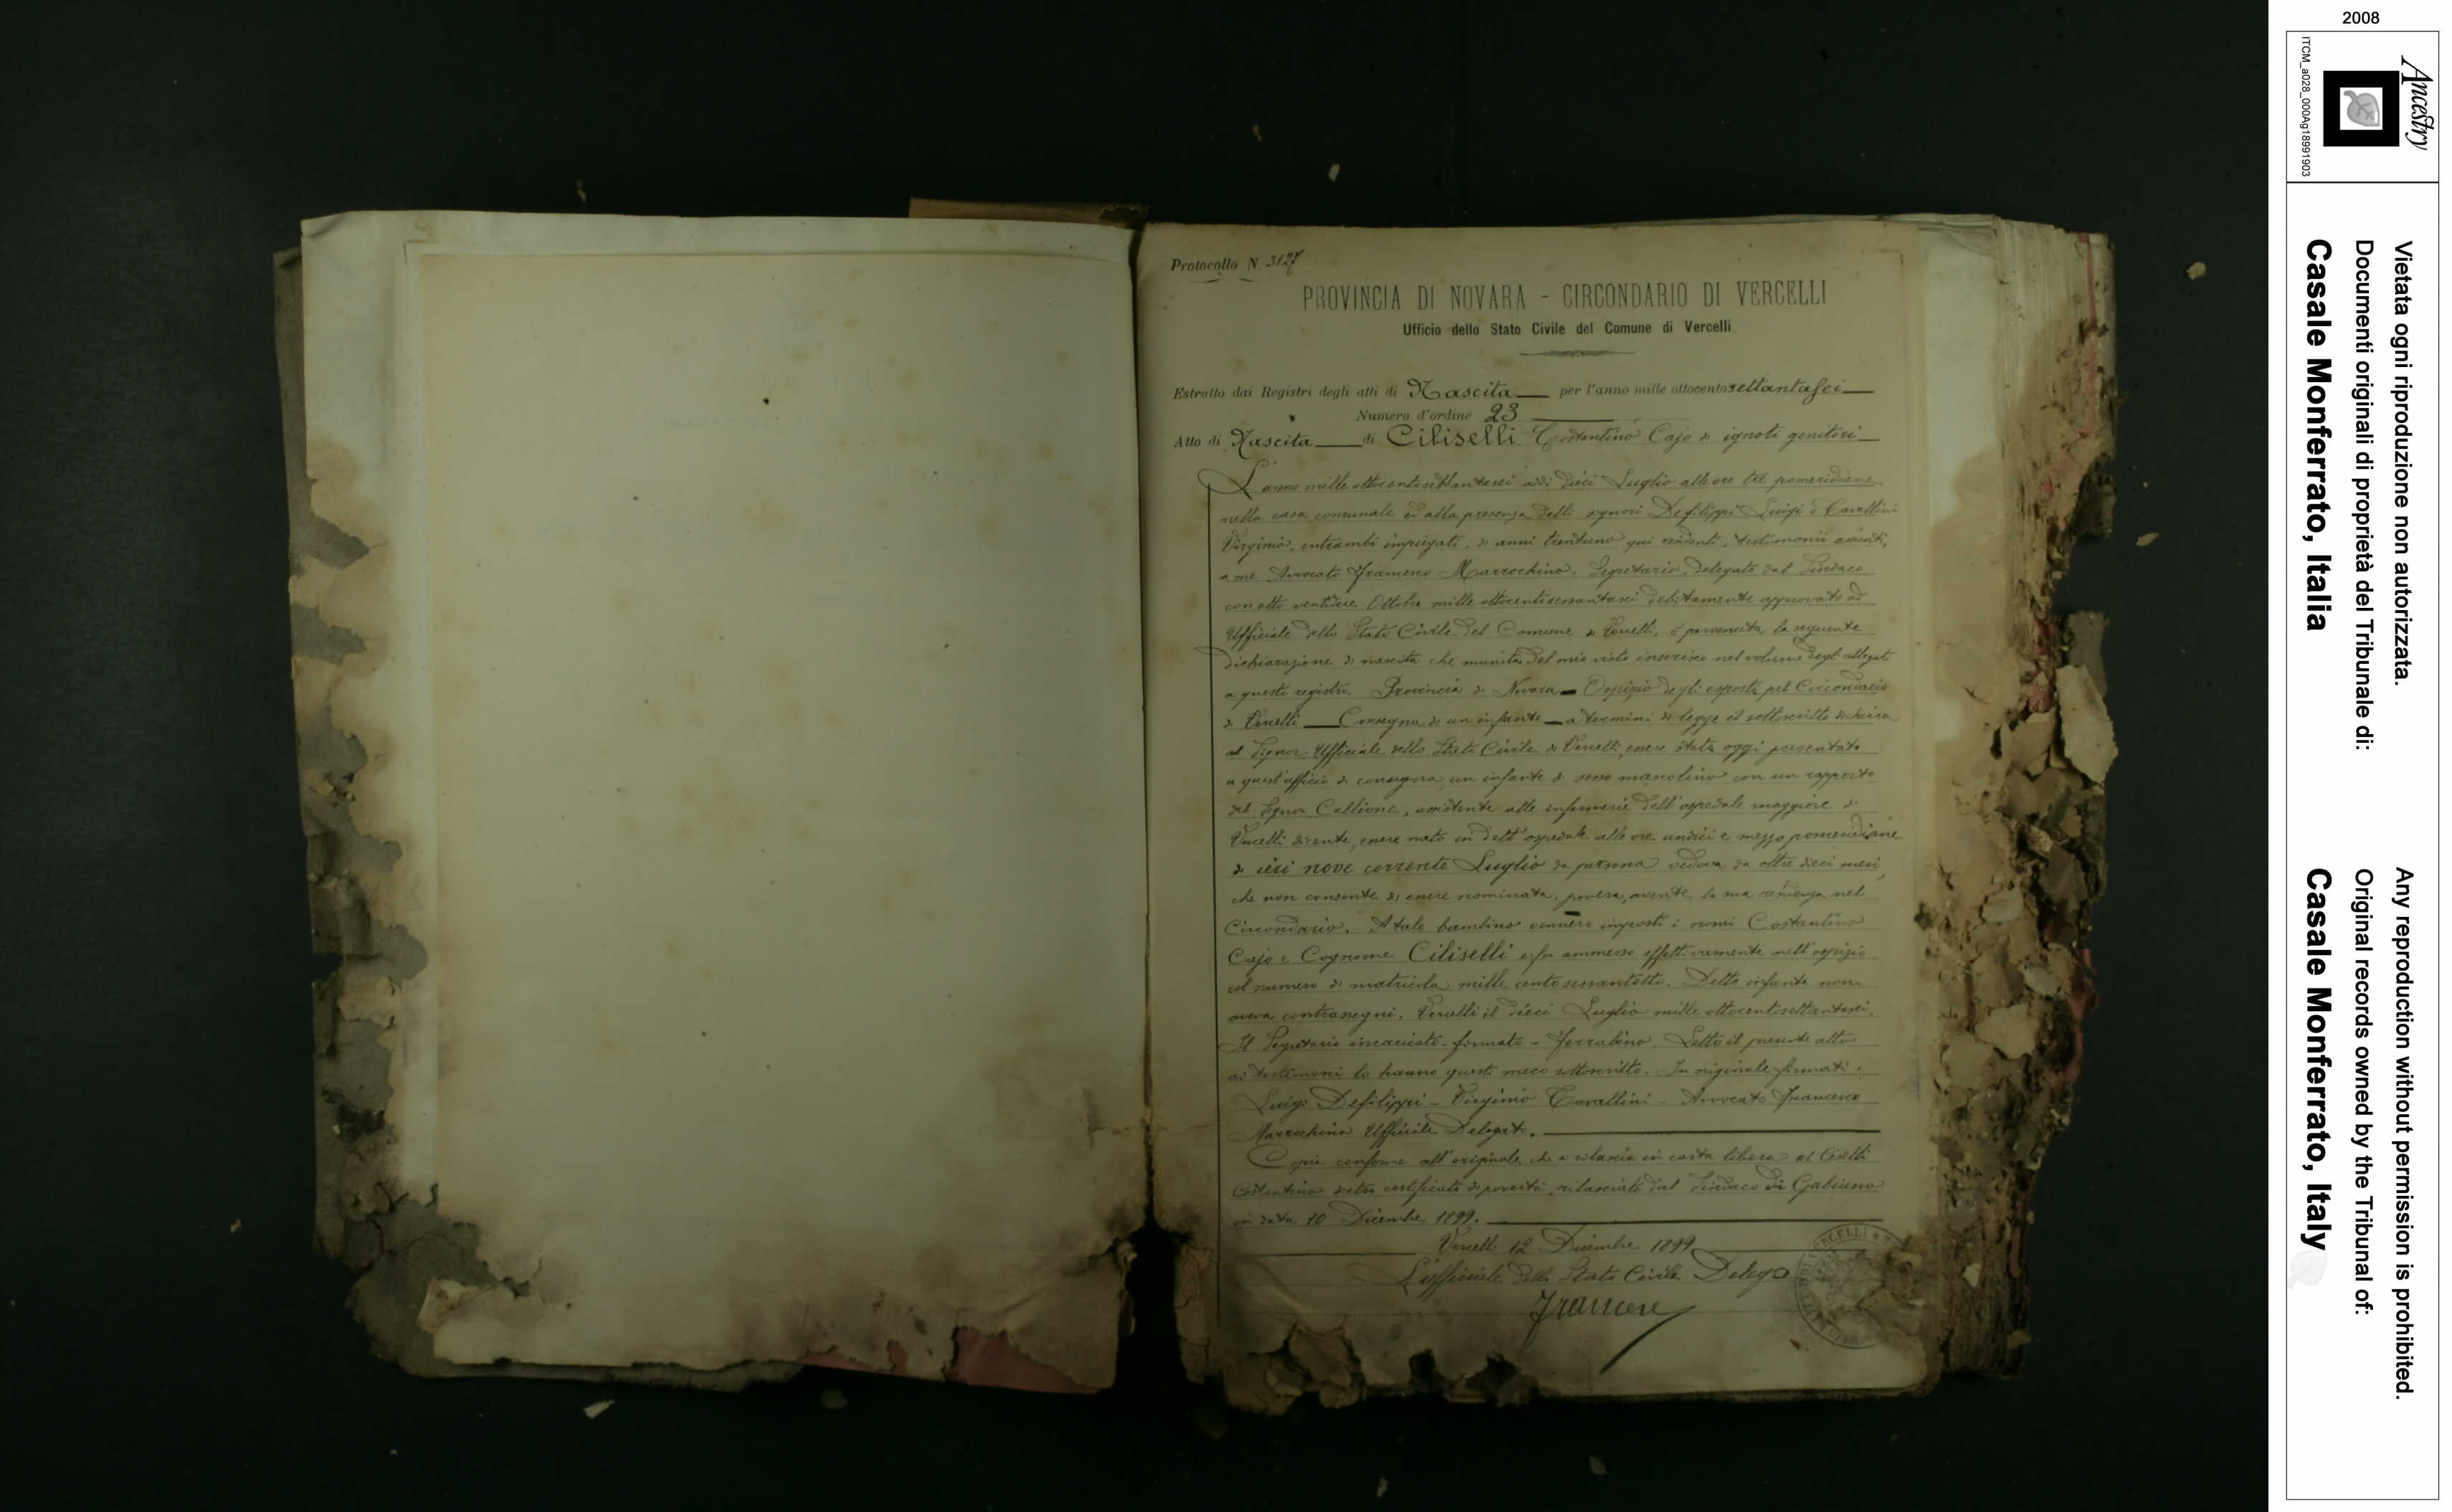 Protocollo N. 3127
PROVINCIA DI NOVARA - CIRCONDARIO DI VERCELLI
Ufficio dello Stato Civile del Comune di Vercelli
Estratto dai Registri degli atti di Nascita per l'anno mille ottocento settantasei
Numero d'ordine 23
Atto di Nascita di Ciliselli Costantino Cajo di ignoti genitori
L'anno mille ottocentosettantasei addì dieci Luglio alle ore tre pomeridiane
nella casa comunale ed alla presenza delli signori Defilippi Luigi e Cavallini
Virginio, entrambi impiegati, di anni trentuno qui residenti, testimonii assunti,
a me Avvocato Francesco Marrochino, Segretario, delegato dal Sindaco
con atto ventidue Ottobre mille ottocentosessantasei debitamente approvato ad
Ufficiale dello Stato Civile del Comune di Vercelli, è pervenuta la seguente
dichiarazione di nascita che munita del mio visto inserisco nel volume degli allegati
a questo registro. Provincia di Novara - Ospizio degli esposti pel Circondario
di Vercelli - Consegna di un infante - a termini di legge il sottoscritto dichiara
al Signor Ufficiale dello Stato Civile di Vercelli, essere stato oggi presentato
a quest'ufficio di consegna, un infante di sesso mascolino con un rapporto
del Signor Callione, assistente alle infermerie dell'ospedale maggiore di
Vercelli dicente, essere nato in dett'ospedale alle ore undici e mezzo pomeridiane
di ieri nove corrente Luglio da persona vedova da oltre dieci mesi,
che non consente di essere nominata, povera, avente la sua residenza nel
Circondario. A tale bambino vennero imposti i nomi Costantino
Cajo e Cognome Ciliselli e fu ammesso effettivamente nell'ospizio
col numero di matricola mille cento sessantotto. Detto infante non
aveva contrassegni. Vercelli il dieci Luglio mille ottocentosettantasei.
Il Segretario incaricato - firmato - Ferrabino. Letto il presente atto
ai testimoni lo hanno questi meco sottoscritto. In originale firmati:
Luigi Defilippi - Virginio Cavallini - Avvocato Francesco
Marrochino Ufficiale Delegato.
Copia conforme all'originale che si rilascia in carta libera al
Costantino dietro certificato di povertà rilasciato dal Sindaco di Gabiano
in data 10 Dicembre 1899.
Vercelli 12 Dicembre 1899
L'ufficiale dello Stato Civile Delego
VERCELLI
2008
Ancestry
ITCM_a028_000Ag18991903
Vietata ogni riproduzione non autorizzata.
Documenti originali di proprietà del Tribunale di:
Casale Monferrato, Italia
Any reproduction without permission is prohibited.
Original records owned by the Tribunal of:
Casale Monferrato, Italy